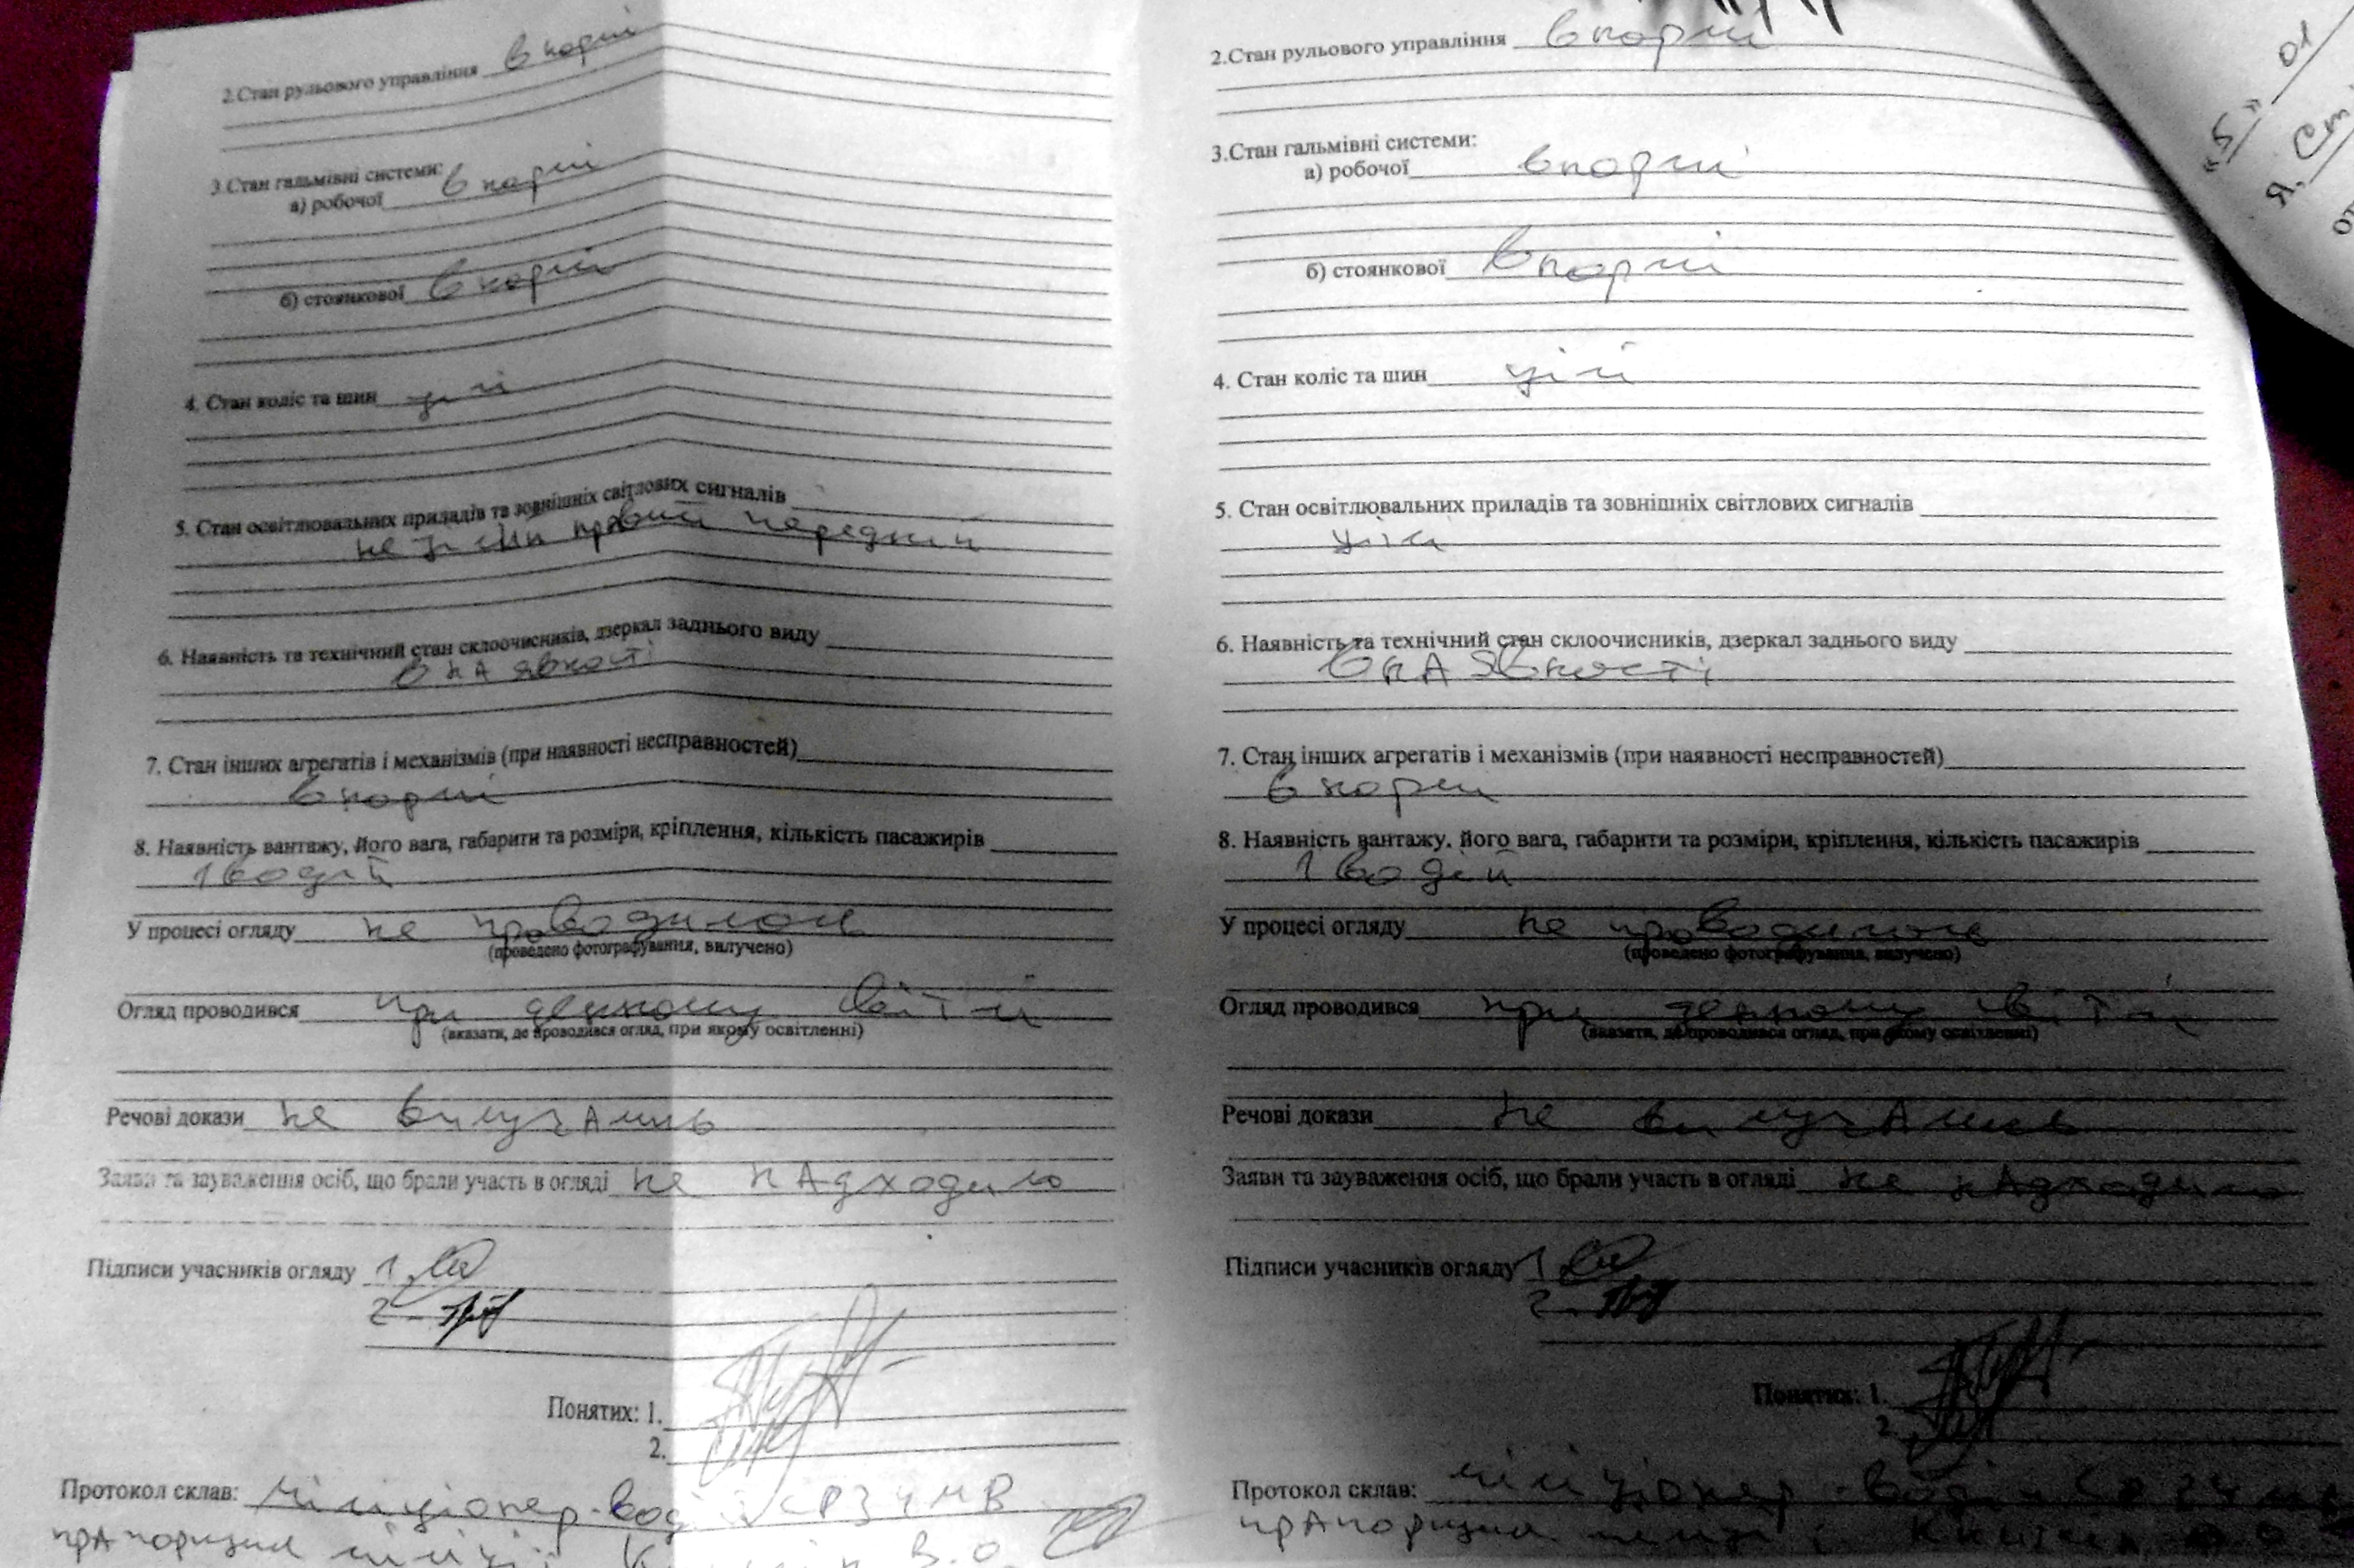 2.Стан рульового управління в нормі
3.Стан гальмівні системи:
а) робочої в нормі
б) стоянкової в нормі
4. Стан коліс та шин цілі
5. Стан освітлювальних приладів та зовнішніх світлових сигналів
не правий передній
6. Наявність та технічний стан склоочисників, дзеркал заднього виду
в нАявності
7. Стан інших агрегатів і механізмів (при наявності несправностей)
в нормі
8. Наявність вантажу, його вага, габарити та розміри, кріплення, кількість пасажирів
1 водій
У процесі огляду не проводилось
(проведено фотографування, вилучено)
Огляд проводився при денному світлі
(вказати, де проводився огляд, при якому освітленні)
Речові докази не вилучАлись
Заяви та зауваження осіб, що брали участь в огляді не нАдходило
Підписи учасників огляду 1.
2.
Понятих: 1.
2.
Протокол склав: міліціонер-водій
прАпорщик міліції В.О.
2.Стан рульового управління в нормі
3.Стан гальмівні системи:
а) робочої в нормі
б) стоянкової в нормі
4. Стан коліс та шин цілі
5. Стан освітлювальних приладів та зовнішніх світлових сигналів
цілі
6. Наявність та технічний стан склоочисників, дзеркал заднього виду
в нАявності
7. Стан інших агрегатів і механізмів (при наявності несправностей)
в нормі
8. Наявність вантажу, його вага, габарити та розміри, кріплення, кількість пасажирів
1 водій
У процесі огляду не проводилось
(проведено фотографування, вилучено)
Огляд проводився при денному світлі
(вказати, де проводився огляд, при якому освітленні)
Речові докази не вилучАлись
Заяви та зауваження осіб, що брали участь в огляді не нАдходило
Підписи учасників огляду 1
2.
Понятих: 1.
2.
Протокол склав: міліціонер-водій
прАпорщик міліції
"5" 01
Я,